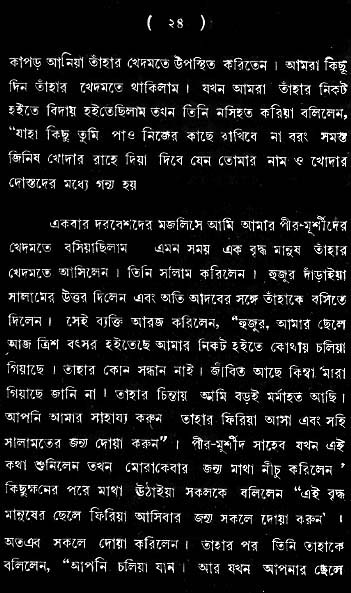 ( ২৪ )
কাপড় আনিয়া তাঁহার খেদমতে উপস্থিত করিতেন। আমরা কিছু
দিন তাঁহার খেদমতে থাকিলাম। যখন আমরা তাঁহার নিকট
হইতে বিদায় হইতেছিলাম তখন তিনি নসিহত করিয়া বলিলেন,
“যাহা কিছু তুমি পাও নিজের কাছে রাখিবে না বরং সমস্ত
জিনিষ খোদার রাহে দিয়া দিবে যেন তোমার নাম ও খোদার
দোস্তদের মধ্যে গন্য হয়
একবার দরবেশদের মজলিসে আমি আমার পীর-মূর্শীদের
খেদমতে বসিয়াছিলাম এমন সময় এক বৃদ্ধ মানুষ তাঁহার
খেদমতে আসিলেন। তিনি সালাম করিলেন। হুজুর দাঁড়াইয়া
সালামের উত্তর দিলেন এবং অতি আদবের সঙ্গে তাঁহাকে বসিতে
দিলেন। সেই ব্যক্তি আরজ করিলেন, “হুজুর, আমার ছেলে
আজ ত্রিশ বৎসর হইতেছে আমার নিকট হইতে কোথায় চলিয়া
গিয়াছে। তাহার কোন সন্ধান নাই। জীবিত আছে কিম্বা মারা
গিয়াছে জানি না। তাহার চিন্তায় আমি বড়ই মর্মাহত আছি।
আপনি আমার সাহায্য করুন তাহার ফিরিয়া আসা এবং সহি
সালামতের জন্য দোয়া করুন”। পীর-মূর্শীদ সাহেব যখন এই
কথা শুনিলেন তখন মোরাকেবার জন্য মাথা নীচু করিলেন ’
কিছুক্ষনের পরে মাথা ঊঠাইয়া সকলকে বলিলেন “এই বৃদ্ধ
মানুষের ছেলে ফিরিয়া আসিবার জন্য সকলে দোয়া করুন’ ।
অতএব সকলে দোয়া করিলেন। তাহার পর তিনি তাহাকে
বলিলেন, “আপনি চলিয়া যান। আর যখন আপনার ছেলে